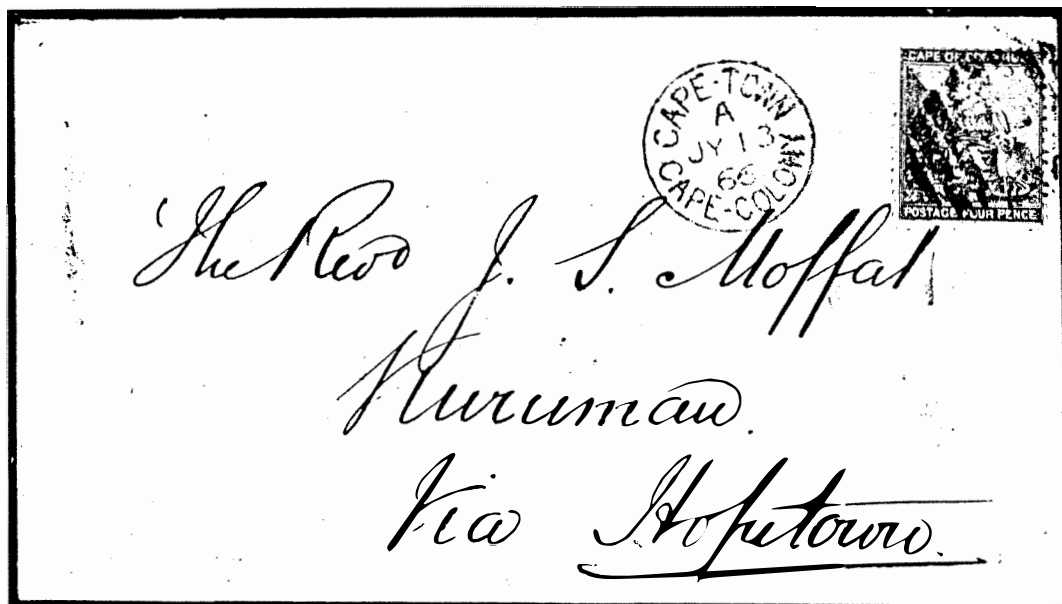 CAPE OF
POSTAGE FOUR PENCE
CAPE-TOWN
A
JY 13
66
CAPE-COLONY
The Revd J. S. Moffat
Kuruman.
Via Hopetown.